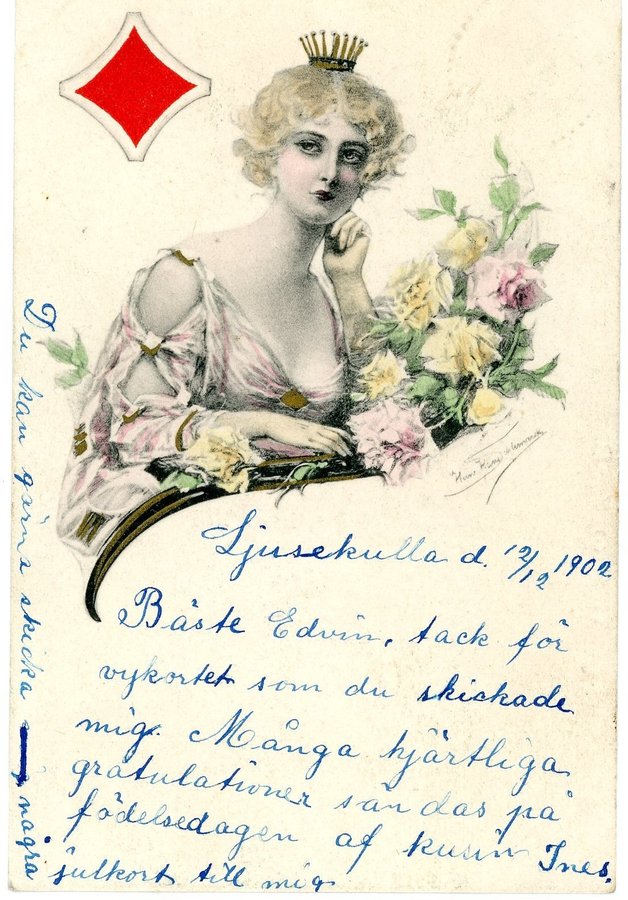 Ljusekulla d. 12/12 1902
Bäste Edvin, tack för
vykortet som du skickade
mig. Många hjärtliga
gratulationer sändas på
födelsedagen af kusin Ines.
Du kan gärna skicka några
julkort till mig